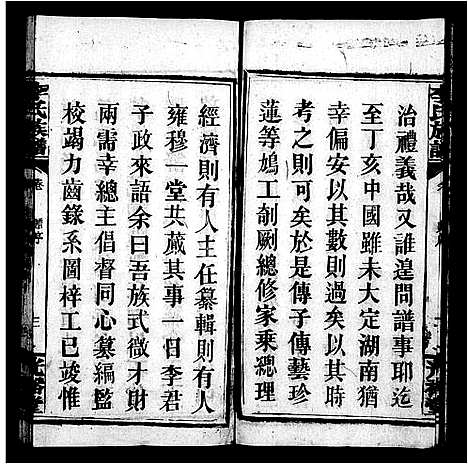 治禮義哉又誰遑問譜事耶迄
至丁亥中國雖未大定湖南猶
幸偏安以其數則過矣以其時
考之則可矣於是傳子傳藝珍
蓮等鳩工剞劂總修家乘總理
經濟則有人主任纂輯則有人
雍穆一堂共蕆其事一日李君
子政來語余曰吾族式微才財
兩需幸總主倡督同心纂編監
校竭力齒錄系圖梓工已竣惟
氏族譜